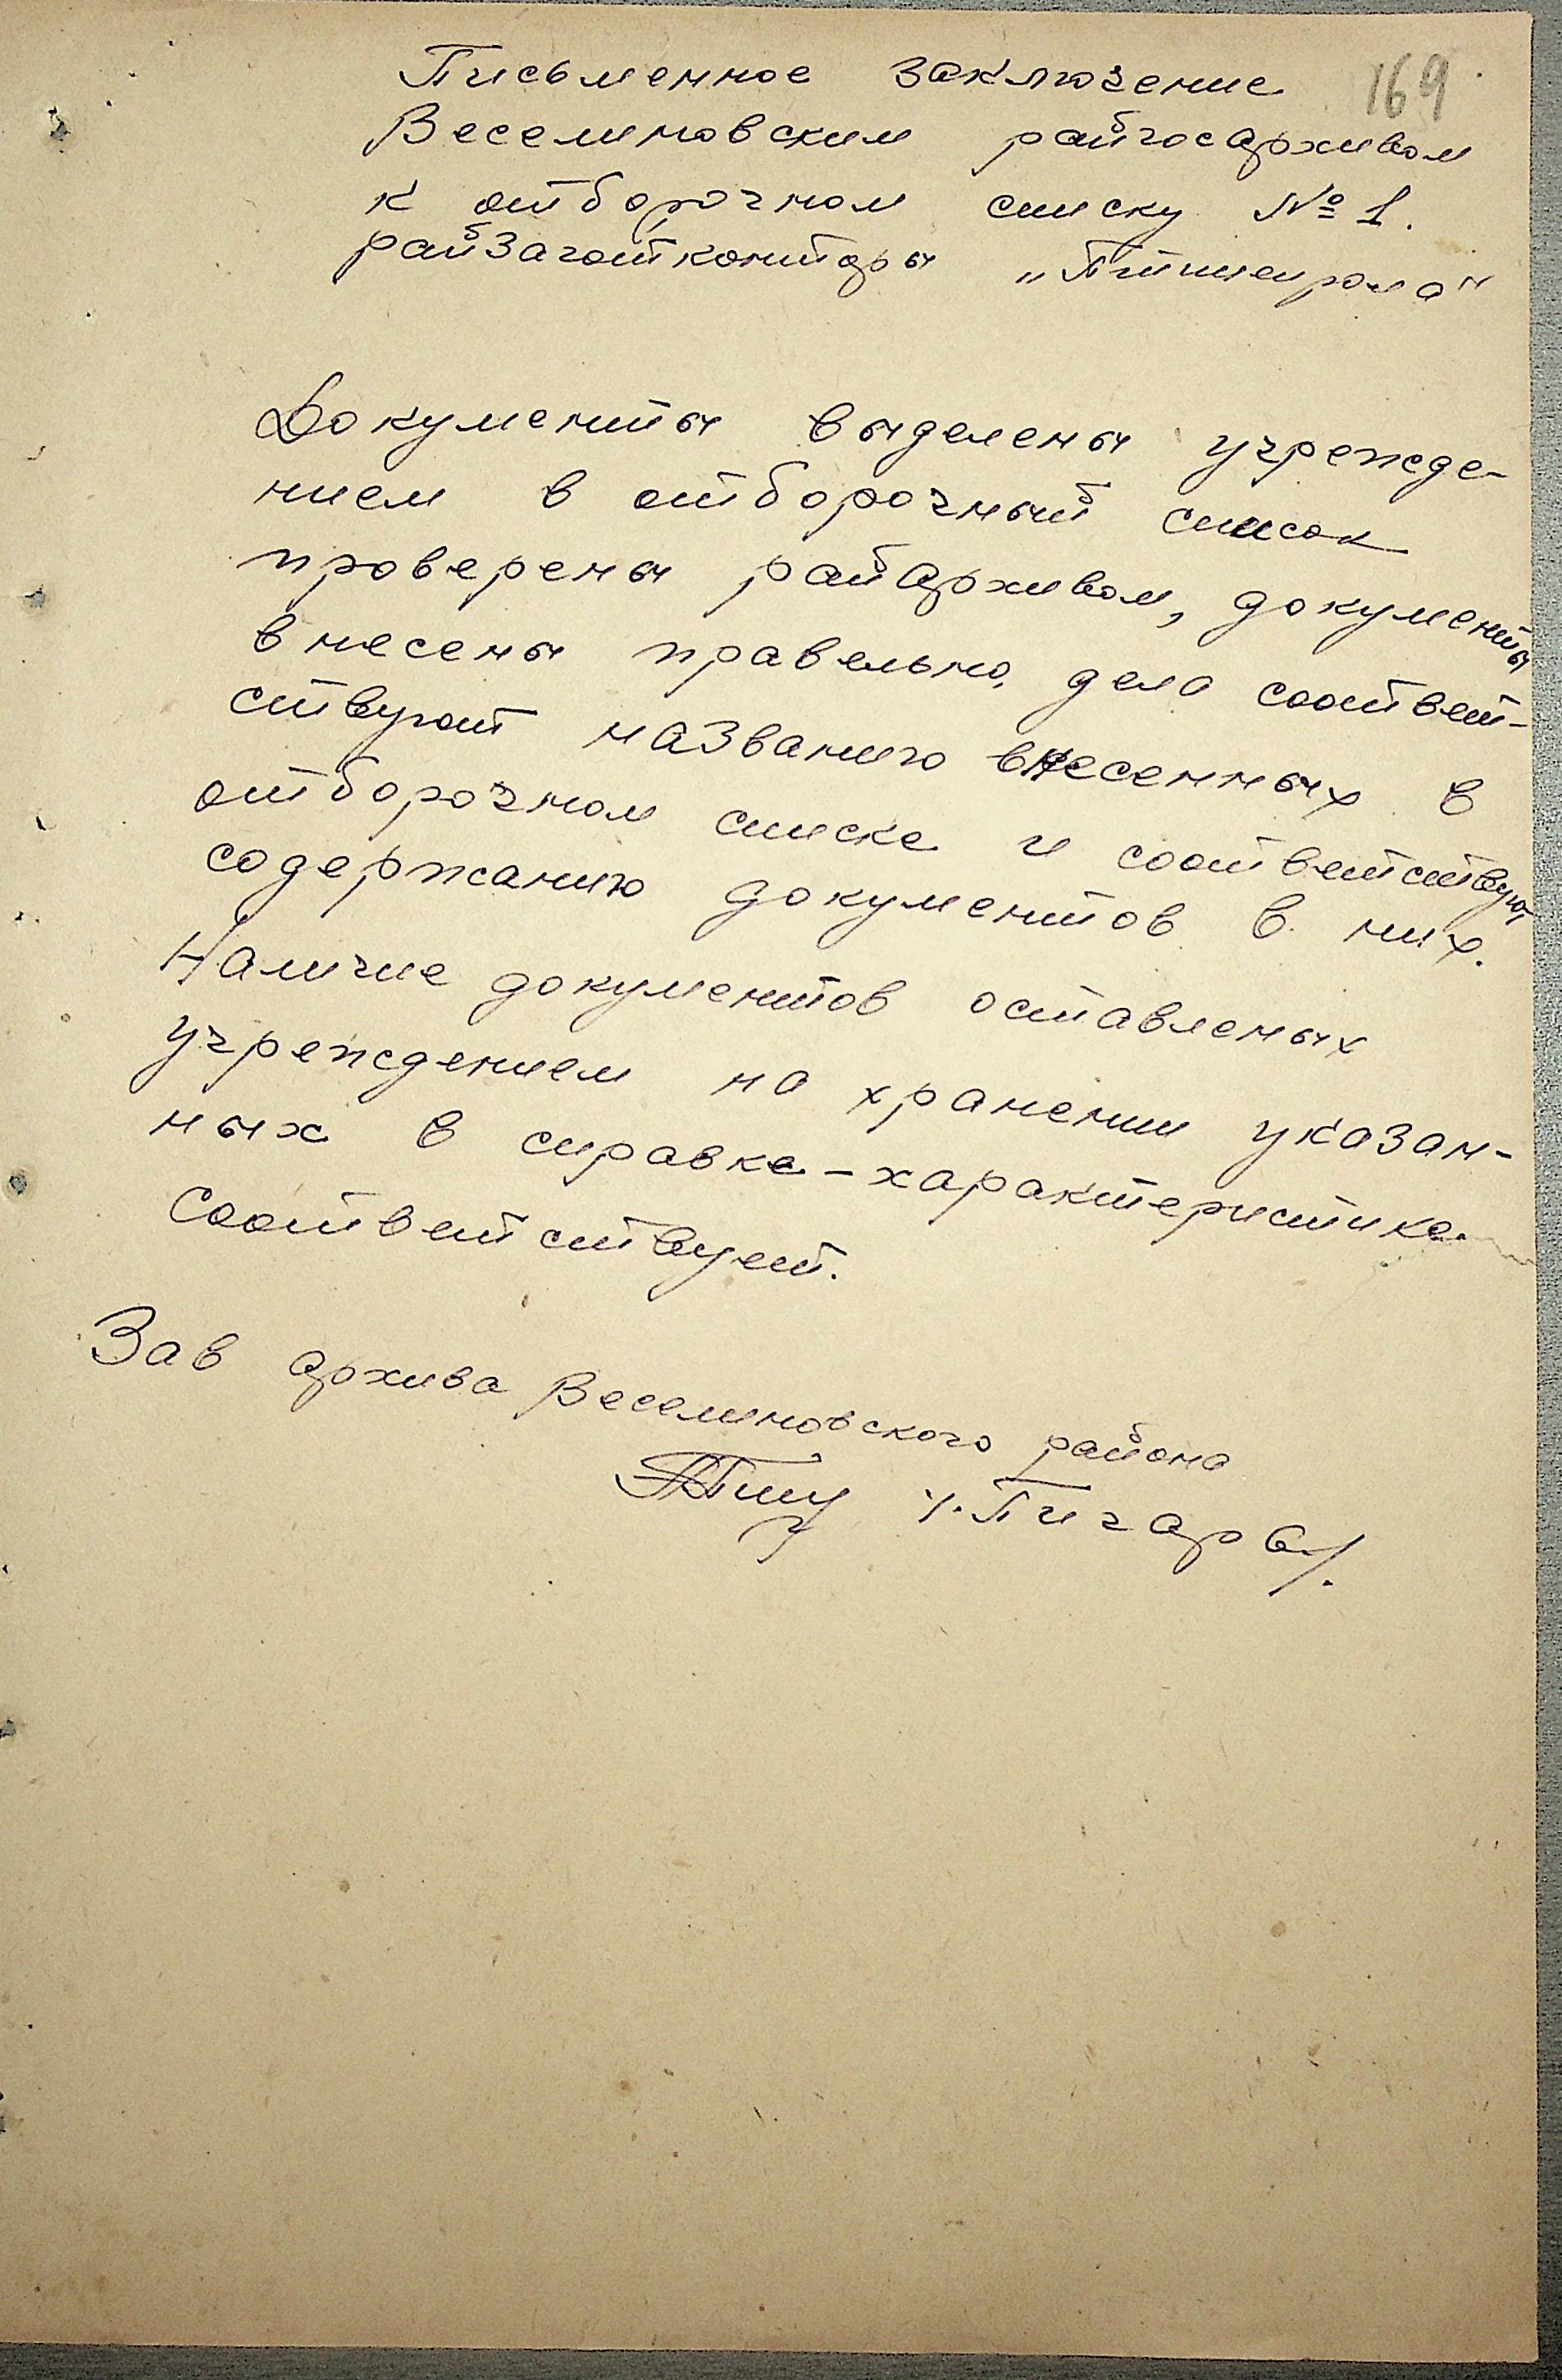 169
Письменное заключение
Веселиновским райгосархивом
к отборочном списку № 1.
райзаготконторы „Птицепрома"
Документы выделены учрежде-
нием в отборочный список
проверены райархивом, документы
внесены правельно, дела соответ-
ствуют названию внесенных в
отборочном списке и соответствую
содержанию документов в них.
Наличие документов оставленых
учреждением на хранении указан-
ных в справке-характеристике
соответствует.
Зав архива Веселиновского района
/.Пигарь/.